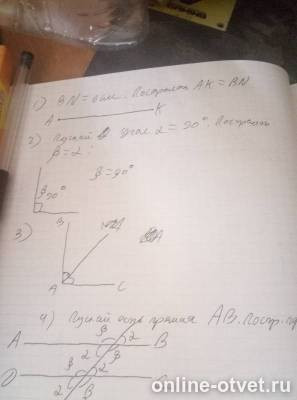 1) BN = 6 см. Построить AK = BN
A K
2) Пусть угол α = 90°. Построить
β = α :
β 90° β = 90°
3) B
A C
4) Пусть есть прямая AB. Постр.
A β α B
α β
D β α
α β
online-otvet.ru